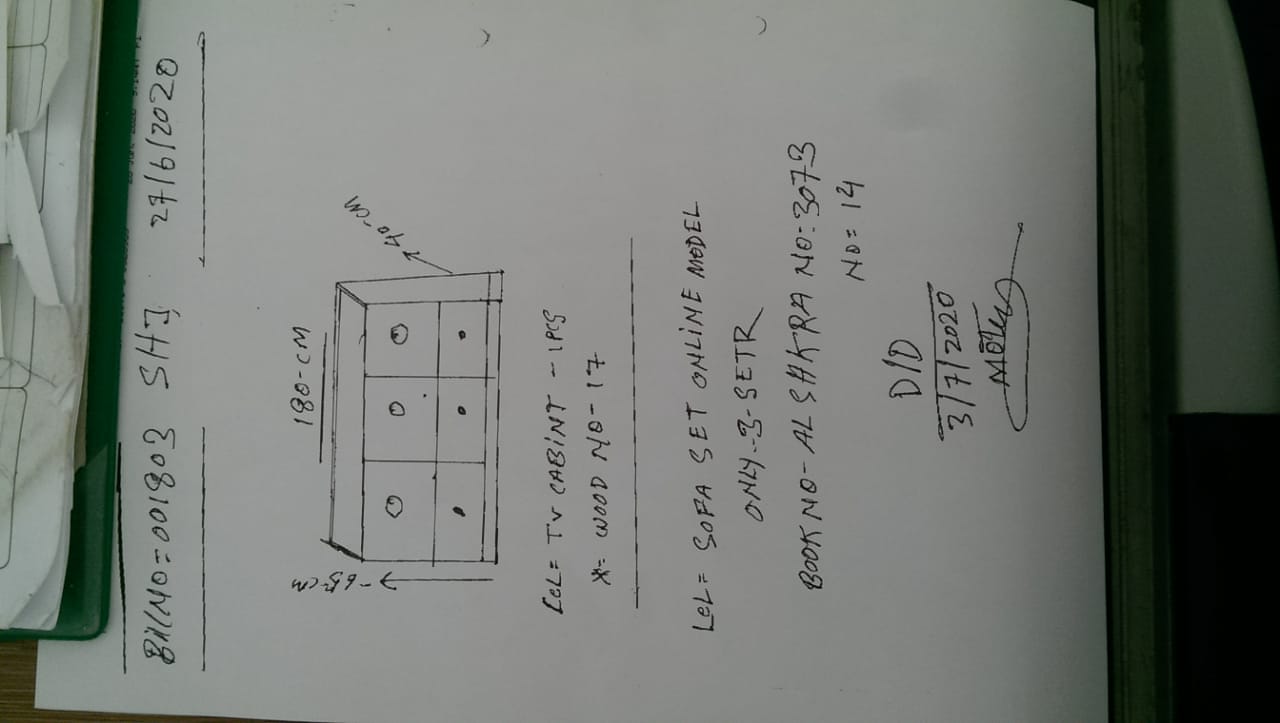 Bill NO=001803 SHJ 27/6/2020
180-CM
-65-CM
40-CM
LeL= TV CABiNT - 1PCS
*= WOOD NO- 17
LeL= SOFA SET ONLiNE MODEL
ONLY-3-SETR
BOOK NO- AL SHKRA NO: 3073
NO= 14
D/D
3/7/2020